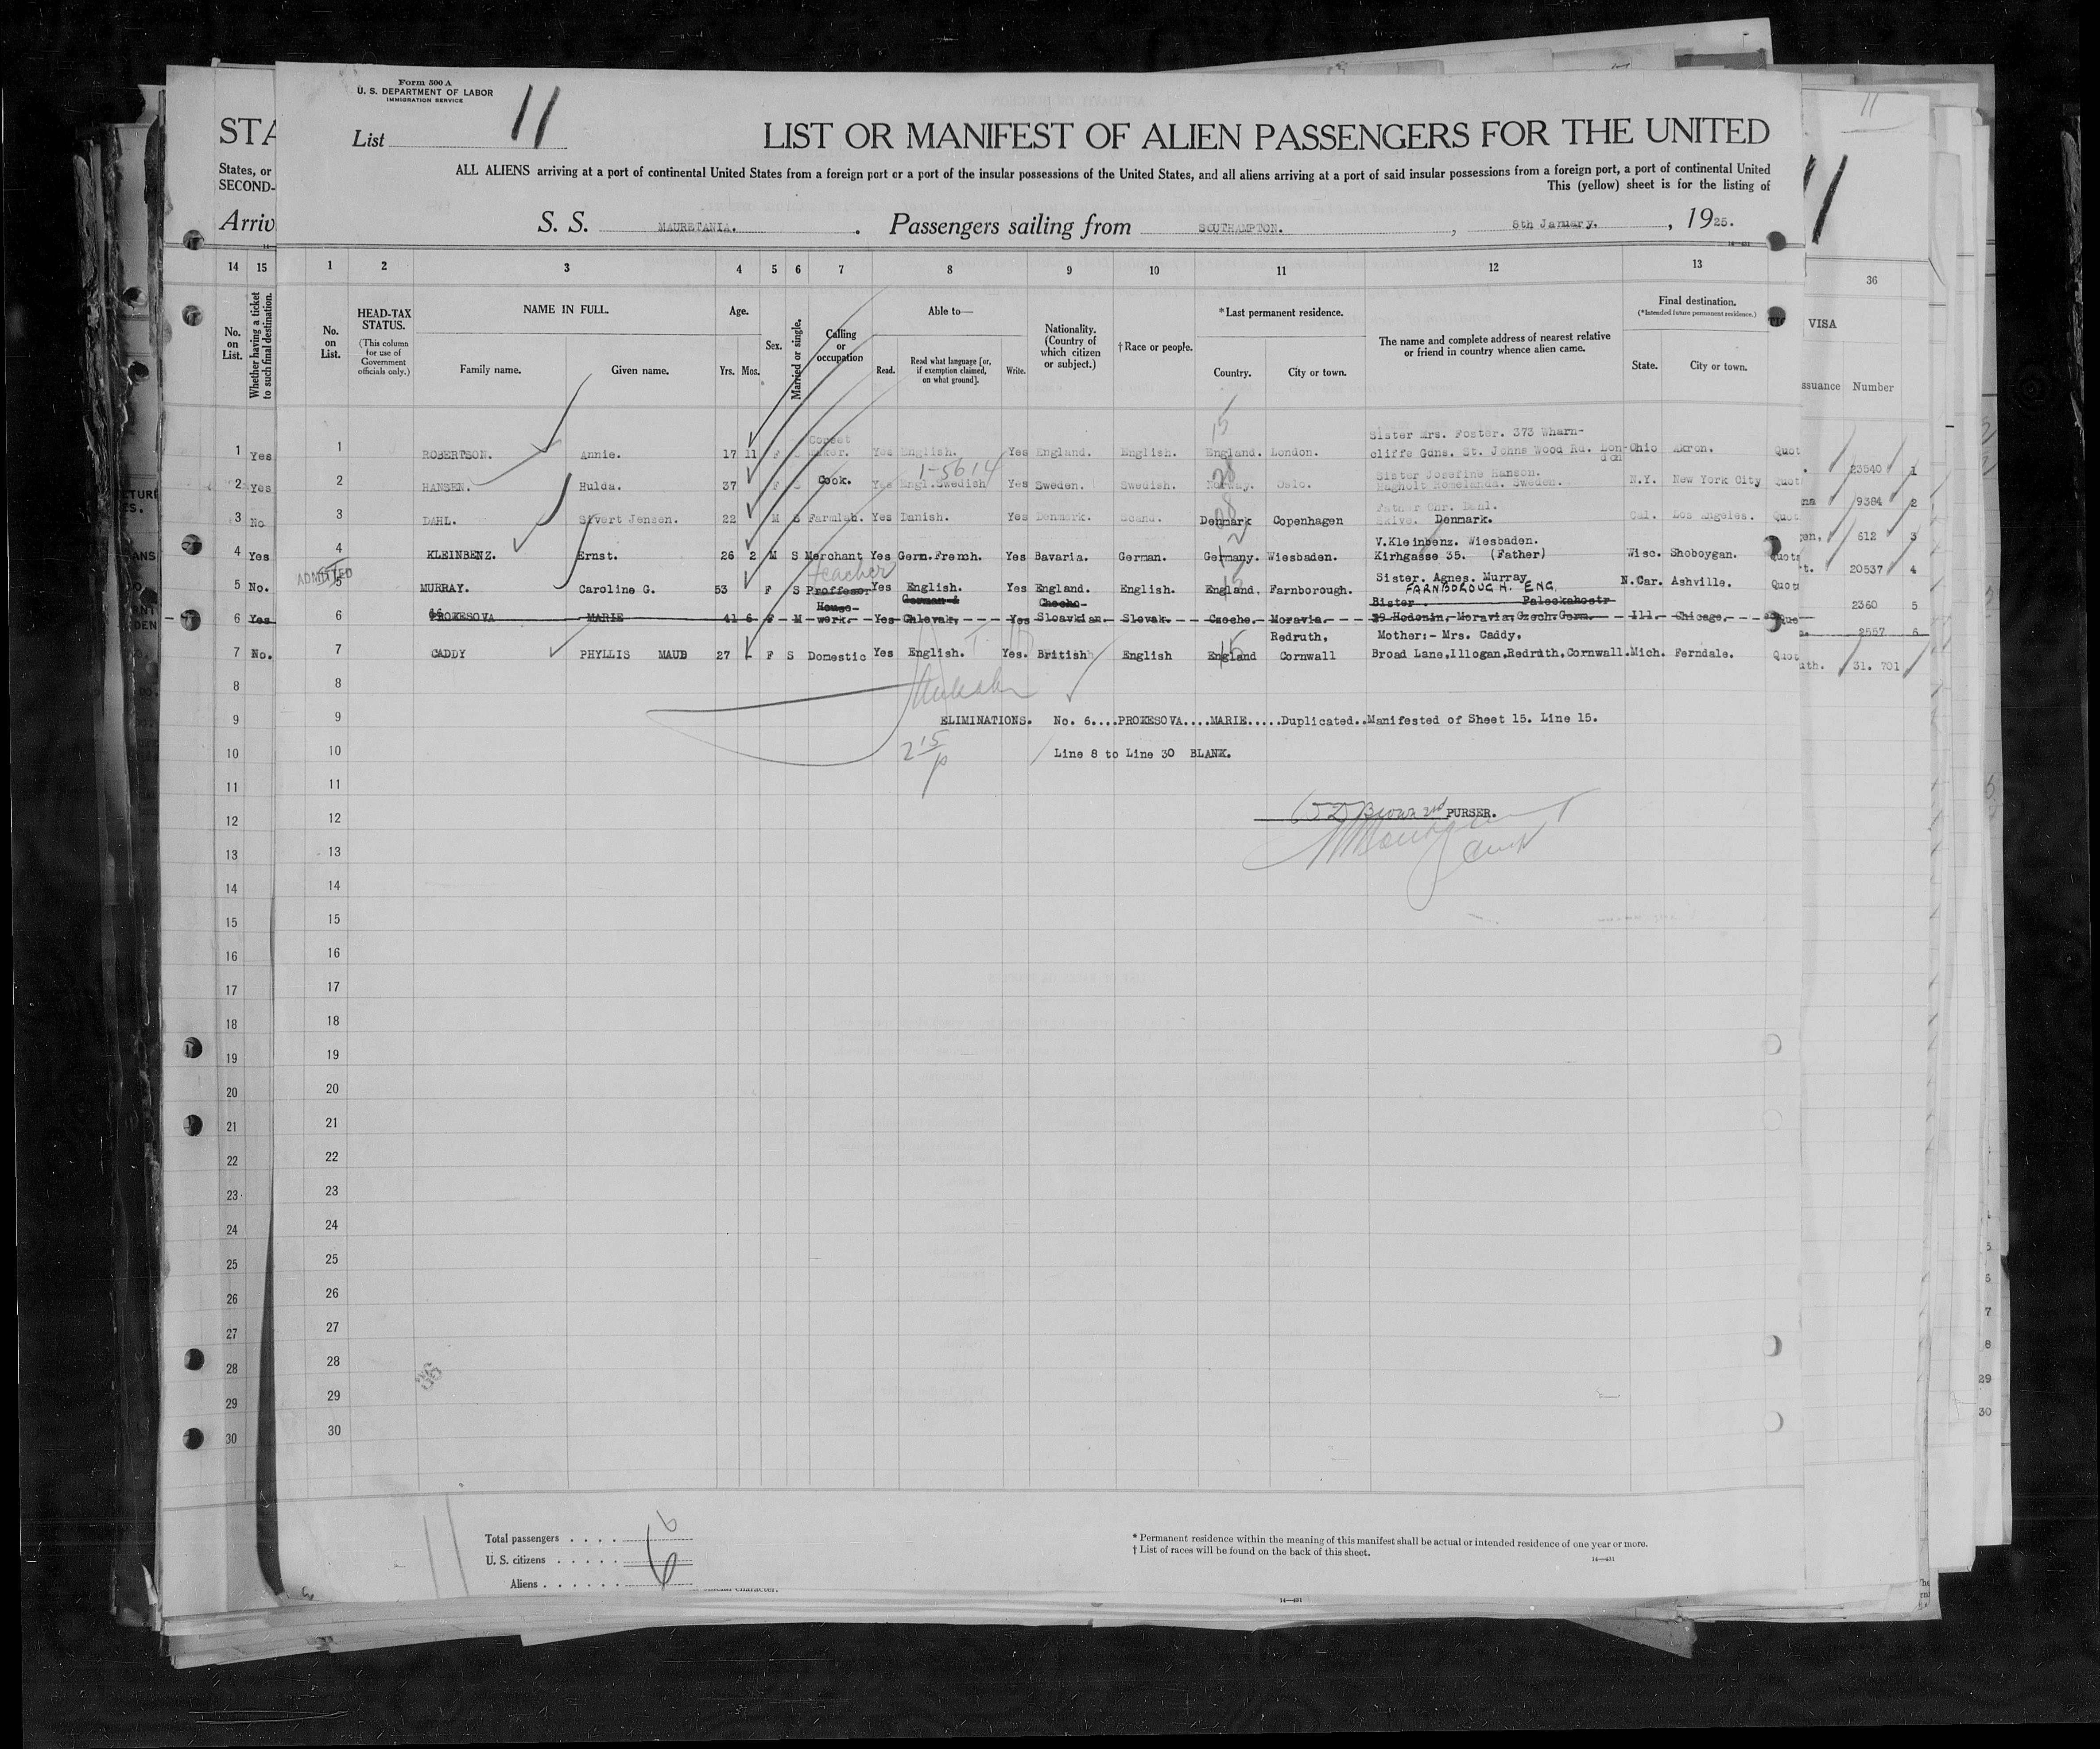 Form 500 A
U. S. DEPARTMENT OF LABOR
IMMIGRATION SERVICE
List 11
LIST OR MANIFEST OF ALIEN PASSENGERS FOR THE UNITED
STA
States, or
SECOND-
ALL ALIENS arriving at a port of continental United States from a foreign port or a port of the insular possessions of the United States, and all aliens arriving at a port of said insular possessions from a foreign port, a port of continental United
This (yellow) sheet is for the listing of
Arriv
S. S. MAURETANIA. Passengers sailing from SOUTHAMPTON. , 8th January. , 1925.
14 15 1 2 3 4 5 6 7 8 9 10 11 12 13 36
No. on List.
Whether having a ticket to such final destination.
No. on List.
HEAD-TAX STATUS.
(This column for use of Government officials only.)
NAME IN FULL.
Family name. Given name.
Age.
Yrs. Mos.
Sex.
Married or single.
Calling or occupation
Able to—
Read. Read what language [or, if exemption claimed, on what ground]. Write.
Nationality. (Country of which citizen or subject.)
†Race or people.
*Last permanent residence.
Country. City or town.
The name and complete address of nearest relative or friend in country whence alien came.
Final destination.
(*Intended future permanent residence.)
State. City or town.
VISA
ssuance Number
15
Corset Sister Mrs. Foster. 373 Wharn-
1 Yes 1 ROBERTSON. Annie. 17 11 F Maker. Yes English. Yes England. English. England. London. cliffe Gdns. St. Johns Wood Rd. London Ohio Akron. Quot 23540 1
1-5614
Sister Josefine Hanson.
2 Yes 2 HANSEN. Hulda. 37 F Cook. Yes Engl.Swedish Yes Sweden. Swedish. Norway. Oslo. Hagholt Romelanda. Sweden. N.Y. New York City Quot 9384 2
Father Chr. Dahl.
3 No 3 DAHL. Sivert Jensen. 22 M S Farmlab. Yes Danish. Yes Denmark. Scand. Denmark Copenhagen Skive. Denmark. Cal. Los Angeles. Quot 612 3
V.Kleinbenz. Wiesbaden.
4 Yes 4 KLEINBENZ. Ernst. 26 2 M S Merchant Yes Germ.French. Yes Bavaria. German. Germany. Wiesbaden. Kirhgasse 35. (Father) Wisc. Shoboygan. Quota 20537 4
ADMITTED
teacher
Sister. Agnes. Murray
5 No. 5 MURRAY. Caroline G. 53 F S Proffesor Yes English. Yes England. English. England, Farnborough. FARNBOROUGH. ENG. N.Car. Ashville. Quot 2360 5
House- German & Checho- Sister Paleckahostr
6 Yes 6 PROKESOVA MARIE 41 6 F M werk. Yes Chlovak. Yes Sloavkian. Slovak. Czeche. Moravia. 39 Hodonin, Moravia, Czech. Germ. Ill. Chicago. Quo 2557 6
Redruth, Mother:- Mrs. Caddy.
7 No. 7 CADDY PHYLLIS MAUD 27 - F S Domestic Yes English. Yes. British English England Cornwall Broad Lane,Illogan,Redruth,Cornwall. Mich. Ferndale. Quot uth. 31. 701 7
8 8
9 9 ELIMINATIONS. No. 6....PROKESOVA....MARIE.....Duplicated..Manifested of Sheet 15. Line 15.
10 10 Line 8 to Line 30 BLANK.
11 11
12 12 Brown 2nd PURSER.
13 13
14 14
15 15
16 16
17 17
18 18
19 19
20 20
21 21
22 22
23 23
24 24
25 25
26 26
27 27
28 28
29 29
30 30
Total passengers . . . . 6
U. S. citizens . . . . .
Aliens . . . . . . 6
* Permanent residence within the meaning of this manifest shall be actual or intended residence of one year or more.
† List of races will be found on the back of this sheet.
14—431
14—431